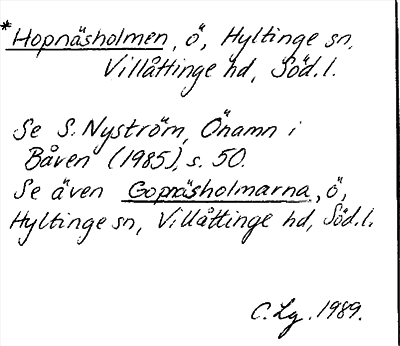 *Hopnäsholmen, ö, Hyltinge sn,
Villåttinge hd, Söd.l.
Se S. Nyström, Önamn i
Båven (1985), s. 50.
Se även Gopnäsholmarna, ö,
Hyltinge sn, Villåttinge hd, Söd.l.
C. Lg. 1989.